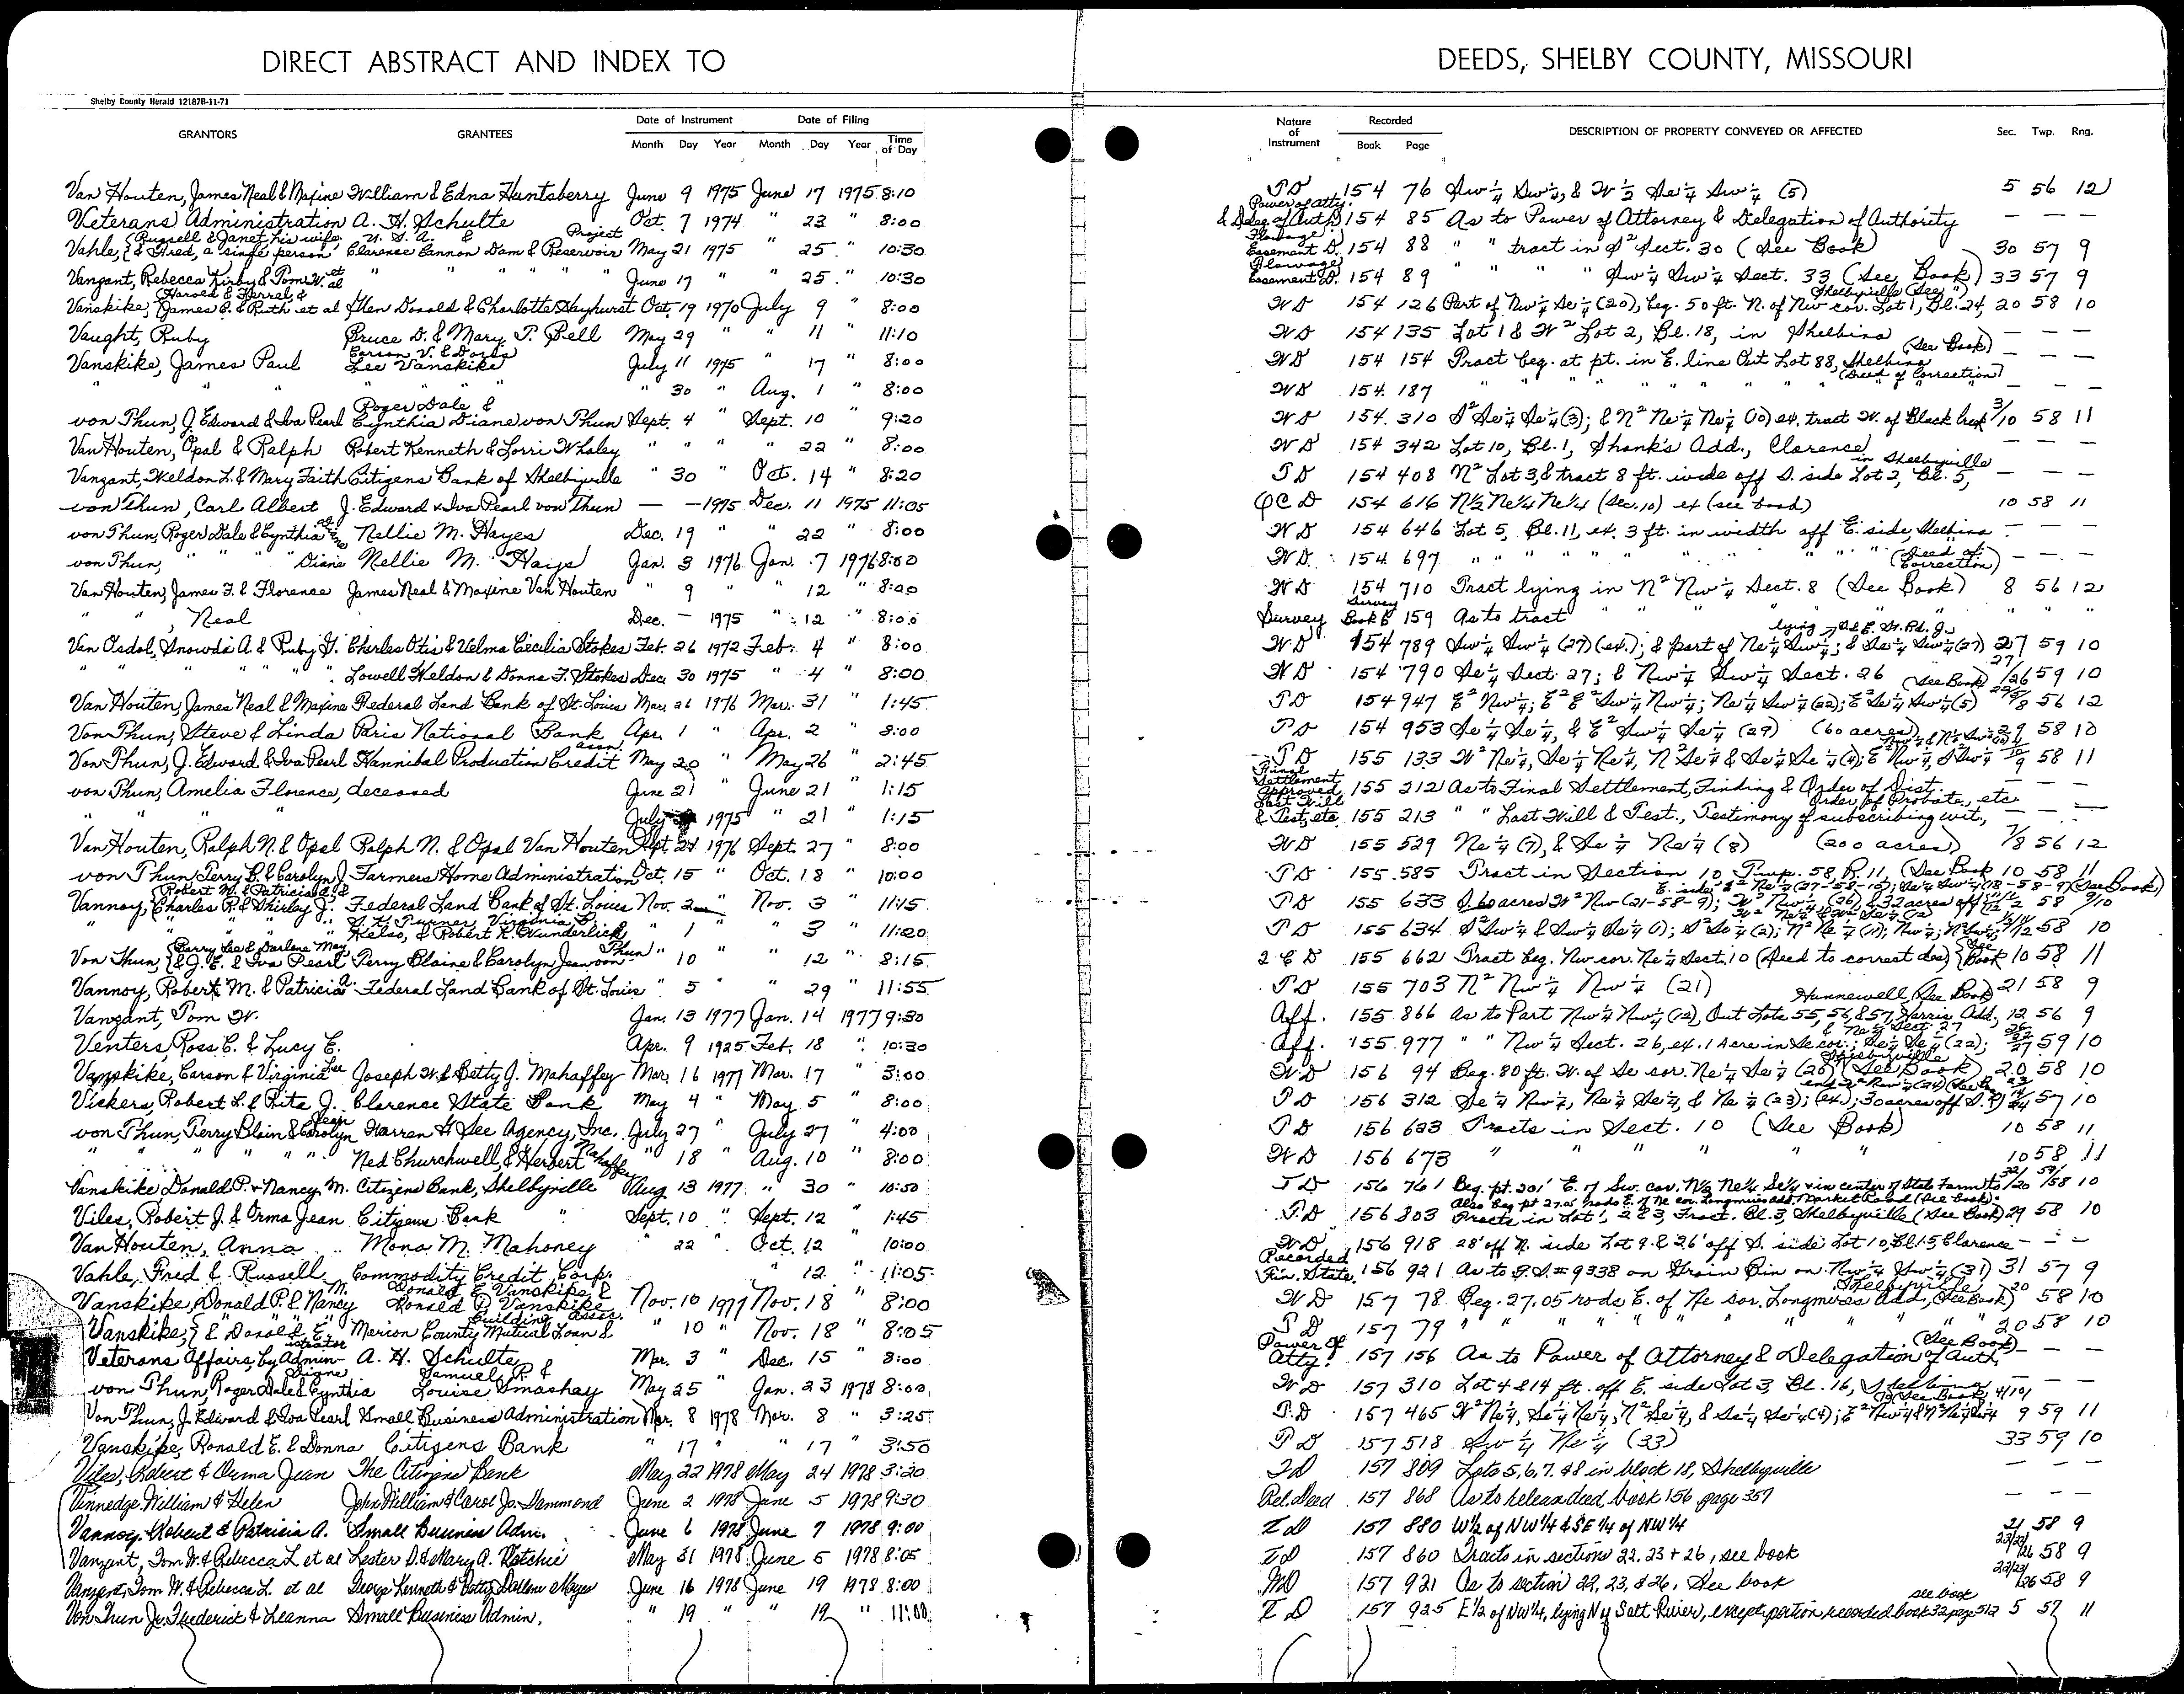 DIRECT ABSTRACT AND INDEX TO DEEDS, SHELBY COUNTY, MISSOURI
Shelby County Herald 12187B-11-71
GRANTORS GRANTEES Date of Instrument Month Day Year Date of Filing Month Day Year Time of Day Nature of Instrument Recorded Book Page DESCRIPTION OF PROPERTY CONVEYED OR AFFECTED Sec. Twp. Rng.
Van Houten, James Neal & Maxine William & Edna Huntsberry June 9 1975 June 17 1975 8:10 TD 154 76 Sw 1/4 Sw 1/4, & W 1/2 Se 1/4 Sw 1/4 (5) 5 56 12
Veterans Administration A. H. Schulte Oct. 7 1974 " 23 " 8:00 Power of Atty. & Deleg. of Auth. 154 85 As to Power of Attorney & Delegation of Authority — — —
Vahle, {Russell & Janet, his wife & Fred, a single person U. S. A. & Clarence Cannon Dam & Reservoir Project May 21 1975 " 25 " 10:30 Flowage Easement D. 154 88 " " tract in S² Sect. 30 (See Book) 30 57 9
Vanzant, Rebecca Kirby & Tom W. et al " " " " " June 17 " " 25 " 10:30 Flowage Easement D. 154 89 " " " " Sw 1/4 Sw 1/4 Sect. 33 (See Book) 33 57 9
Vanskike, {Harold & Ferrel, & James E. & Ruth et al Glen Donald & Charlotte Hayhurst Oct. 19 1970 July 9 " 8:00 WD 154 126 Part of Nw 1/4 Se 1/4 (20), beg. 50 ft. N. of Nw cor. Lot 1, Bl. 24, Shelbyville (See ") 20 58 10
Vaught, Ruby Bruce D. & Mary T. Bell May 29 " " 11 " 11:10 WD 154 135 Lot 1 & W² Lot 2, Bl. 18, in Shelbina — — —
Vanskike, James Paul Carson V. & Doris Lee Vanskike July 11 1975 " 17 " 8:00 WD 154 154 Tract beg. at pt. in E. line Out Lot 88, Shelbina (See Book) — — —
" " " " 30 " Aug. 1 " 8:00 WD 154 187 " " " " " " " " " (Deed of Correction) — — —
von Thun, J. Edward & Iva Pearl Roger Dale & Cynthia Diane von Thun Sept. 4 " Sept. 10 " 9:20 WD 154 310 S² Se 1/4 Se 1/4 (3); & N² Ne 1/4 Ne 1/4 (10) ex. tract W. of Black Creek 3/10 58 11
Van Houten, Opal & Ralph Robert Kenneth & Lorri Whaley " " " " 22 " 8:00 WD 154 342 Lot 10, Bl. 1, Shank's Add., Clarence — — —
Vanzant, Weldon L. & Mary Faith Citizens Bank of Shelbyville " 30 " Oct. 14 " 8:20 TD 154 408 N² Lot 3, & tract 8 ft. wide off S. side Lot 2, Bl. 5, in Shelbyville — — —
von Thun, Carl Albert J. Edward & Iva Pearl von Thun — — 1975 Dec. 11 1975 11:05 QCD 154 616 N1/2 Ne1/4 Ne1/4 (Sec. 10) ex (see book) 10 58 11
von Thun, Roger Dale & Cynthia Nellie M. Hayes Dec. 19 " " 22 " 8:00 WD 154 646 Lot 5, Bl. 11, ex. 3 ft. in width off E. side, Shelbina — — —
von Thun, " " " " Diane Nellie M. Hays Jan. 3 1976 Jan. 7 1976 8:00 WD 154 697 " " " " " " " " " (Deed of Correction) — — —
Van Houten, James F. & Florence James Neal & Maxine Van Houten " 9 " " 12 " 8:00 WD 154 710 Tract lying in N² Nw 1/4 Sect. 8 (See Book) 8 56 12
" " , Neal Dec. — 1975 " 12 " 8:00 Survey Survey Book B 159 As to tract " " " " " " " "
Van Osdol, Snowda A. & Ruby G. Charles Otis & Velma Cecilia Stokes Feb. 26 1972 Feb. 4 " 8:00 WD 154 789 Sw 1/4 Sw 1/4 (27) (ex.); & part of Ne 1/4 Sw 1/4; & Se 1/4 Sw 1/4 (27) lying S. & E. St. Rd. J. 27 59 10
" " " " " " Lowell Weldon & Donna F. Stokes Dec. 30 1975 " 4 " 8:00 WD 154 790 Se 1/4 Sect. 27; & Nw 1/4 Sw 1/4 Sect. 26 (See Book) 27/26 59 10
Van Houten, James Neal & Maxine Federal Land Bank of St. Louis Mar. 26 1976 Mar. 31 " 1:45 TD 154 947 E² Nw 1/4; E² E² Sw 1/4 Nw 1/4; Ne 1/4 Sw 1/4 (22); E² Se 1/4 Sw 1/4 (5) 56 12
Von Thun, Steve & Linda Paris National Bank Apr. 1 " Apr. 2 " 8:00 TD 154 953 Se 1/4 Se 1/4, & E² Sw 1/4 Se 1/4 (29) (60 acres) 29 58 10
Von Thun, J. Edward & Iva Pearl Hannibal Production Credit Assn. May 20 " May 26 " 2:45 TD 155 133 W² Ne 1/4, Se 1/4 Ne 1/4, N² Se 1/4 & Se 1/4 Se 1/4 (4); E² Nw 1/4, 9 58 11
von Thun, Amelia Florence, deceased June 21 " June 21 " 1:15 Final Settlement Approved 155 212 As to Final Settlement, Finding & Order of Dist. — — —
" " " July 1975 " 21 " 1:15 Last Will & Test, etc. 155 213 " " Last Will & Test., Testimony of subscribing wit., Order of Probate, etc. — —
Van Houten, Ralph N. & Opal Ralph N. & Opal Van Houten Sept. 24 1976 Sept. 27 " 8:00 WD 155 529 Ne 1/4 (7), & Se 1/4 Ne 1/4 (8) (200 acres) 7/8 56 12
von Thun, Terry B. & Carolyn J. Farmers Home Administration Oct. 15 " Oct. 18 " 10:00 TD 155 585 Tract in Section 10 Twp. 58, R. 11, (See Book) 10 58 11
Vannoy, {Robert M. & Patricia A. & Charles R. & Shirley J. Federal Land Bank of St. Louis Nov. 2 " Nov. 3 " 11:15 TD 155 633 60 acres W² Nw (21-58-9); W² Nw 1/4 (26), & 32 acres off E. side (See Book) 58 9/10
" " " " Virginia B. Kelso, & Robert K. Wunderlich " 1 " " 3 " 11:20 TD 155 634 S² Sw 1/4 & Sw 1/4 Se 1/4 (1); S² Se 1/4 (2); N² Ne 1/4 (11); Nw 1/4; 58 10
Von Thun, {Barry Lee & Darlene May & J. E. & Iva Pearl Terry Blaine & Carolyn Jean von Thun " 10 " " 12 " 8:15 QCD 155 662 Tract beg. Nw cor. Ne 1/4 Sect. 10 (Deed to correct des) (See Book) 10 58 11
Vannoy, Robert M. & Patricia A. Federal Land Bank of St. Louis " 5 " " 29 " 11:55 TD 155 703 N² Nw 1/4 Nw 1/4 (21) 21 58 9
Vanzant, Tom W. Jan. 13 1977 Jan. 14 1977 9:30 Aff. 155 866 As to Part Nw 1/4 Nw 1/4 (12), Out Lots 55, 56, & 57, Harris Add., Hunnewell (See Book) 12 56 9
Venters, Ross E. & Lucy E. Apr. 9 1925 Feb. 18 " 10:30 Aff. 155 977 " " Nw 1/4 Sect. 26, ex. 1 acre in Se cor.; Se 1/4 Se 1/4 (22); & Ne 1/4 Sect. 27 59 10
Vanskike, Carson & Virginia Lee Joseph W. & Betty J. Mahaffey Mar. 16 1977 Mar. 17 " 3:00 WD 156 94 Beg. 80 ft. W. of Se cor. Ne 1/4 Se 1/4 (20) Shelbyville (See Book) 20 58 10
Vickers, Robert L. & Rita J. Clarence State Bank May 4 " May 5 " 8:00 TD 156 312 Se 1/4 Nw 1/4, Ne 1/4 Se 1/4, & Ne 1/4 (23); (ex.); 30 acres off 57 10
von Thun, Terry Blain & Carolyn Jean Warren H. See Agency, Inc. July 27 " July 27 " 4:00 TD 156 623 Tracts in Sect. 10 (See Book) 10 58 11
" " " " " Ned Churchwell, & Herbert Mahaffey " 18 " Aug. 10 " 8:00 WD 156 673 " " " " " 10 58 11
Vanskike, Donald P. & Nancy M. Citizens Bank, Shelbyville Aug 13 1977 " 30 " 10:50 TD 156 761 Beg. pt. 201' E. of Sw. cor. N1/2 Ne1/4 Se1/4 & in center of State Farm to Market Road (See book). Also beg pt 27.05 rods E. of Ne cor. Longmires add. 58 10
Viles, Robert J. & Orma Jean Citizens Bank " Sept. 10 " Sept. 12 " 1:45 TD 156 803 Tracts in Lot 1, 2 & 3, Fract. Bl. 3, Shelbyville (See Book) 29 58 10
Van Houten, Anna Mona M. Mahoney " 22 " Oct. 12 " 10:00 WD 156 918 28' off N. side Lot 9 & 26' off S. side Lot 10, Bl. 15, Clarence — — —
Vahle, Fred & Russell Commodity Credit Corp. " 12 " 11:05 Recorded Fin. State. 156 921 As to F.S. # 9338 on Grain Bin on Nw 1/4 Sw 1/4 (31) 31 57 9
Vanskike, Donald P. & Nancy M. Donald E. Vanskike & Ronald P. Vanskike Nov. 10 1977 Nov. 18 " 8:00 WD 157 78 Beg. 27.05 rods E. of Ne cor. Longmires Add., Shelbyville (See Book) 20 58 10
Vanskike, { & " Donald E. Marion County Mutual Loan & Building Assoc. " 10 " Nov. 18 " 8:05 TD 157 79 " " " " " " " " " 20 58 10
Veterans Affairs, by Administrator A. H. Schulte Mar. 3 " Dec. 15 " 8:00 Power of Atty. 157 156 As to Power of Attorney & Delegation of Auth. (See Book) — — —
von Thun, Roger Dale & Cynthia Diane Samuel R. & Louise Smashey May 25 " Jan. 23 1978 8:00 WD 157 310 Lot 4 & 14 ft. off E. side Lot 3, Bl. 16, Shelbina — — —
Von Thun, J. Edward & Iva Pearl Small Business Administration Mar. 8 1978 Mar. 8 " 3:25 TD 157 465 W² Ne 1/4, Se 1/4 Ne 1/4, N² Se 1/4, & Se 1/4 Se 1/4 (4); E² Nw 1/4 & N² Ne 1/4 (See Book) 9 59 11
Vanskike, Ronald E. & Donna Citizens Bank " 17 " " 17 " 3:50 TD 157 518 Sw 1/4 Ne 1/4 (33) 33 59 10
Viles, Robert & Orma Jean The Citizens Bank May 22 1978 May 24 1978 3:20 TD 157 809 Lots 5, 6, 7, & 8 in block 18, Shelbyville — — —
Vinnedge, William & Helen John William & Carol Jo. Hammond June 2 1978 June 5 1978 9:30 Rel. Deed 157 868 As to release deed book 156 page 357 — — —
Vannoy, Robert & Patricia A. Small Business Adm. June 6 1978 June 7 1978 9:00 TD 157 880 W1/2 of NW 1/4 & SE 1/4 of NW 1/4 21 58 9
Vanzant, Tom W. & Rebecca L et al Lester D. & Mary A. Ritchie May 31 1978 June 5 1978 8:05 TD 157 860 Tracts in sections 22, 23 + 26, see book 23/22/26 58 9
Vanzant, Tom W. & Rebecca L. et al George Kenneth & Betty Darlene Mayes June 16 1978 June 19 1978 8:00 WD 157 921 As to section 22, 23, & 26, See book 22/23/26 58 9
Von Thun Jr. Frederick & Leanna Small Business Admin. " 19 " " 19 " 11:00 TD 157 925 E1/2 of NW1/4, lying N of Salt River, except portion recorded book 32 page 512 see book 5 57 11